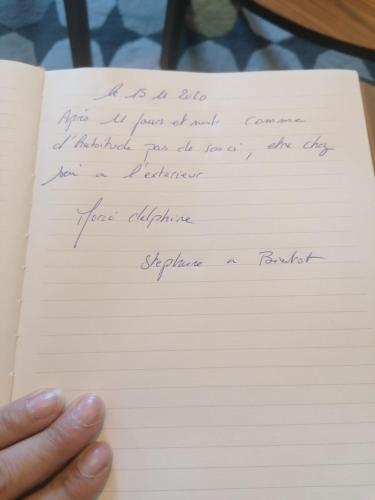 le 13 11 2020
Après 11 jours et nuits comme
d'habitude pas de souci, etre chez
soi a l'exterieur
Merci delphine
Stephane a Bientot